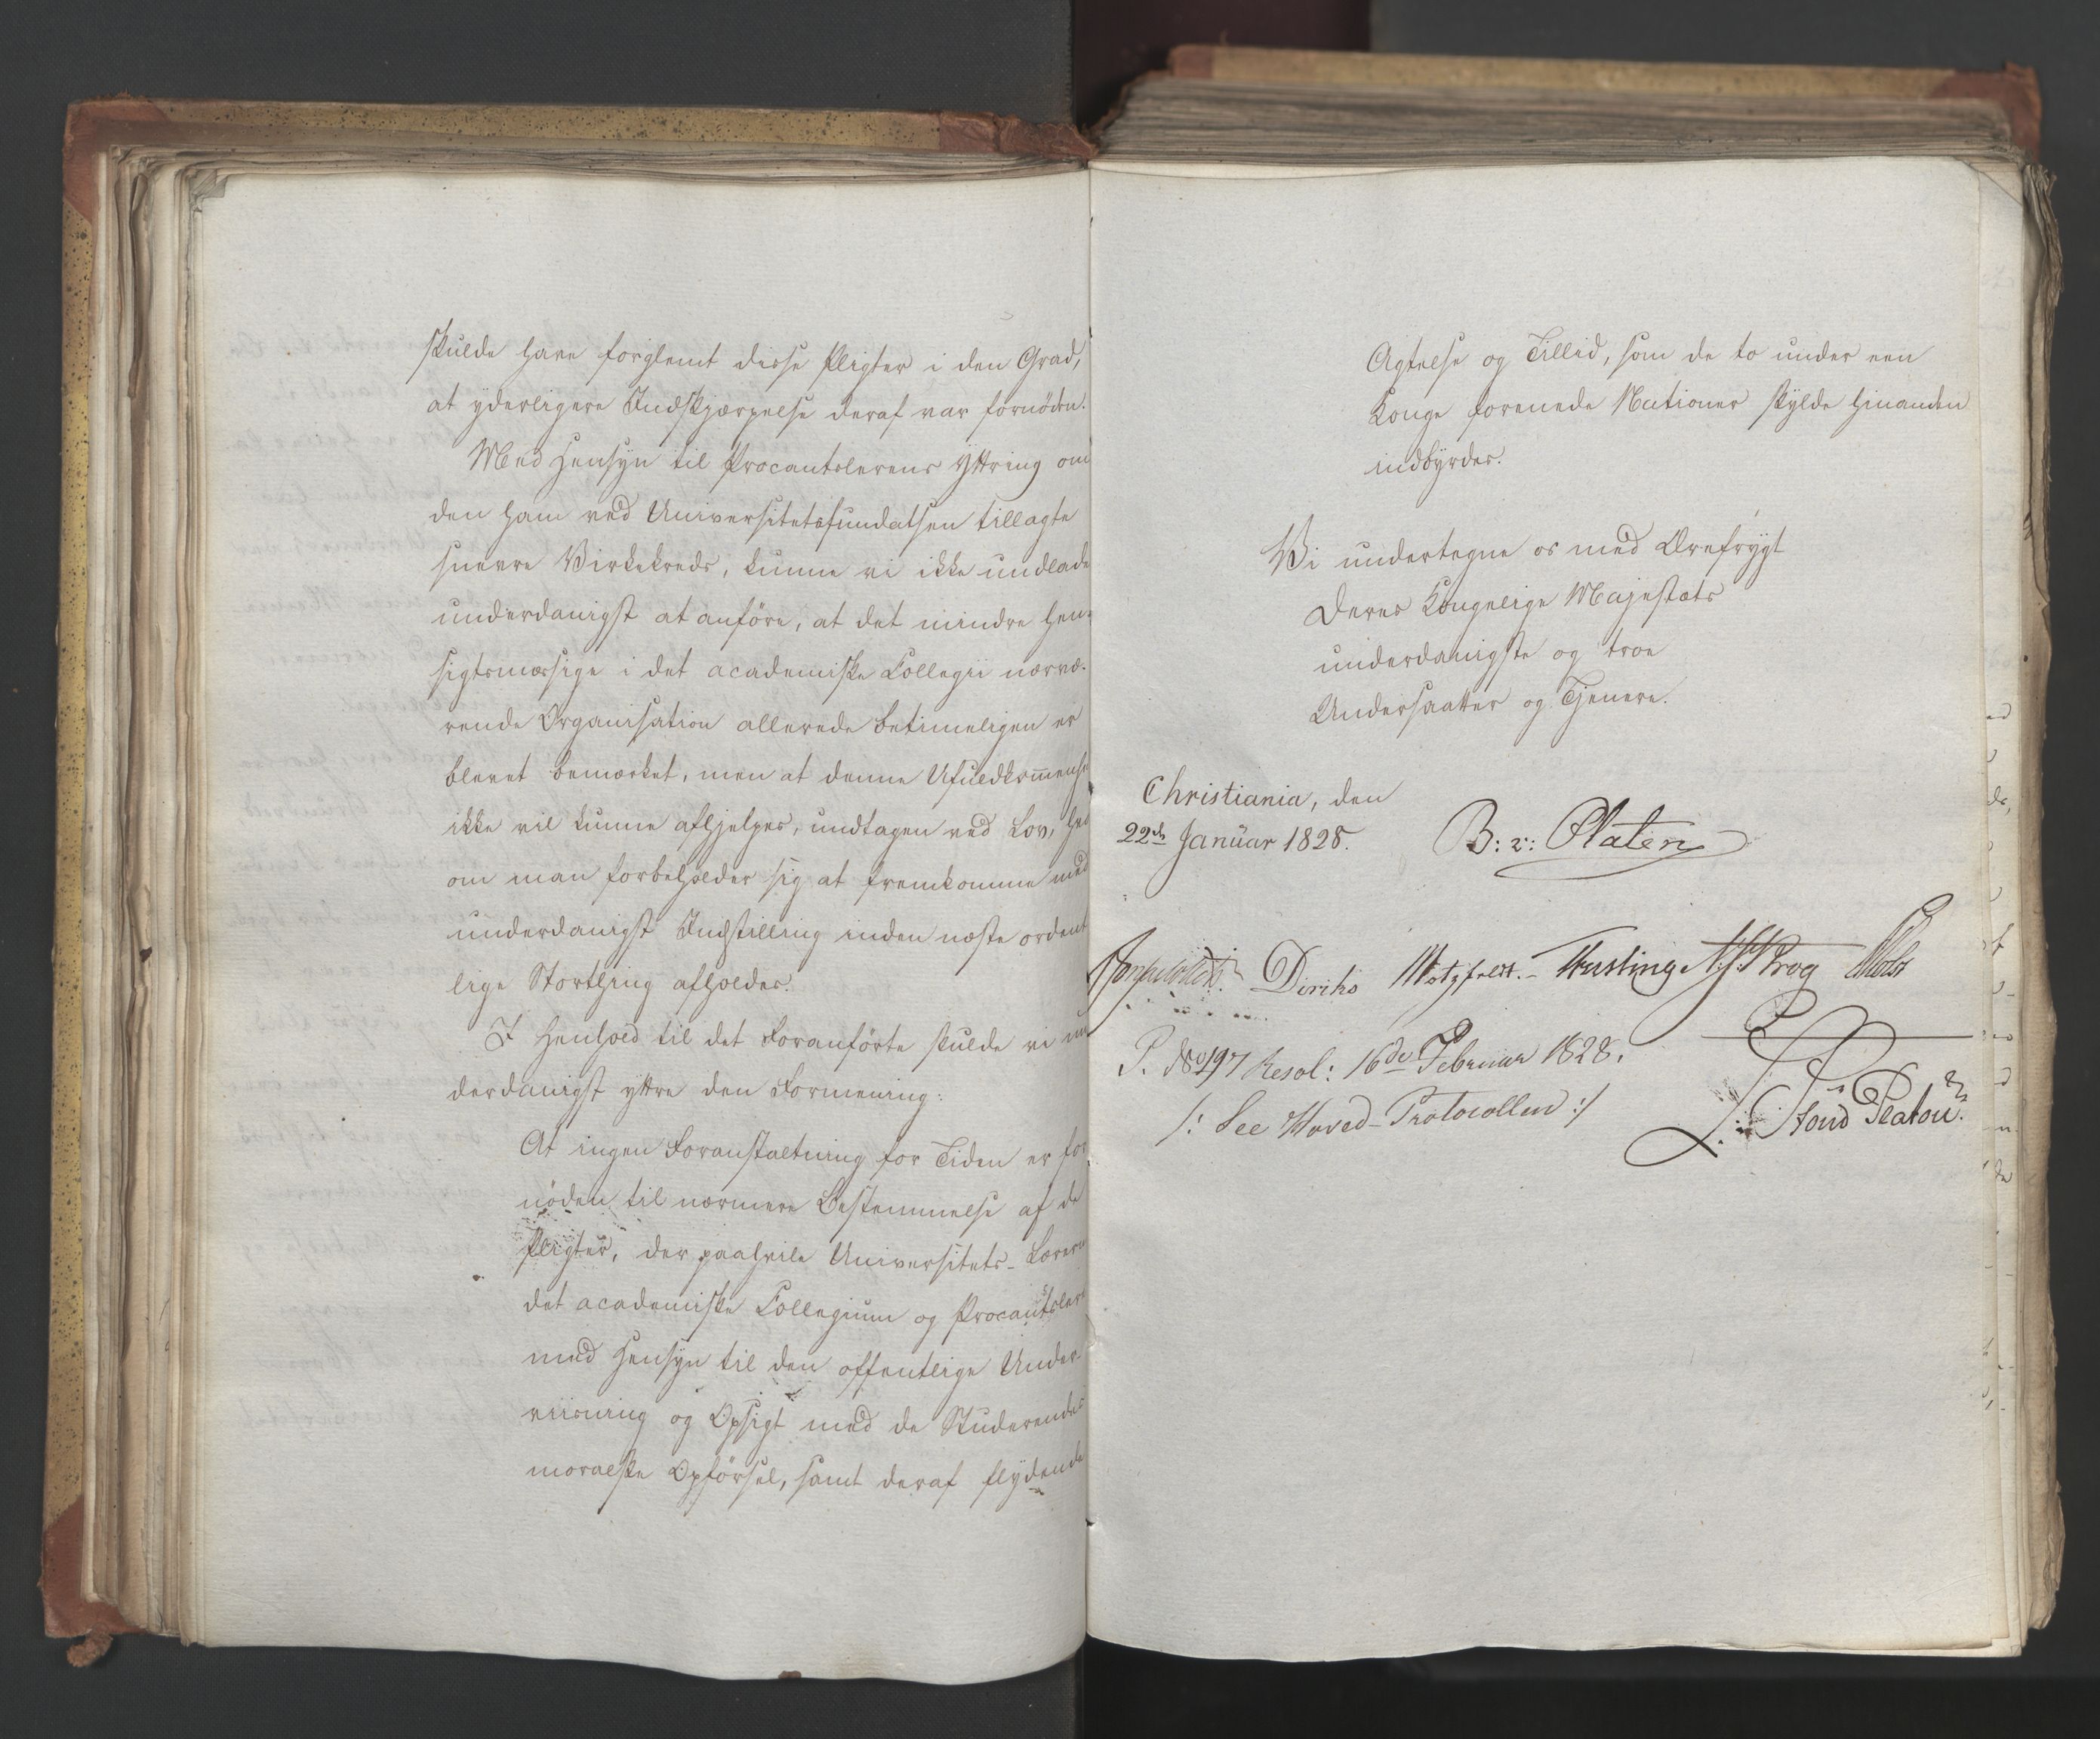 skulde have forglemt disse Pligter i den Grad,
at yderligere Indskjærpelse deraf var fornöden.
Med Hensyn til Procantslerens Yttring om
den ham ved Universitetsfundatsen tillagte
snevre Virkekreds, kunne vi ikke undlade
underdanigst at anföre, at det mindre Hen-
sigtsmæssige i det academiske Collegii nærvæ-
rende Organisation allerede betimeligen er
blevet bemærket, men at denne Ufuldkommenhe
ikke vil kunne afhjelpes, undtagen ved Lov, hvo
om man forbeholder sig at fremkomme med
underdanigst Indstilling inden næste ordent
lige Storthing afholdes.
I Henhold til det Foranförte skulde vi un
derdanigst yttre den Formening:
At ingen Foranstaltning for Tiden er for
nöden til nærmere Bestemmelse af de
Pligter, der paahvile Universitets-Lærere
det academiske Collegium og Procantsler
med Hensyn til den offentlige Under-
viisning og Opsigt med de Studerendes
moralske Opförsel, samt deraf flydende
Agtelse og Tillid, som de to under een
Konge forenede Nationer skylde hinanden
indbyrdes.
Vi undertegne os med Ærefrygt
Deres Kongelige Majestæts
underdanigste og troe
Undersaatter og Tjenere.
Christiania, den
22de Januar 1828.
B: v: Platen
Diriks Motzfeldt. Fasting Krog
P. No 197 Resol: 16de Februar 1828.
/: See Hoved-Protocollen :/
Platou